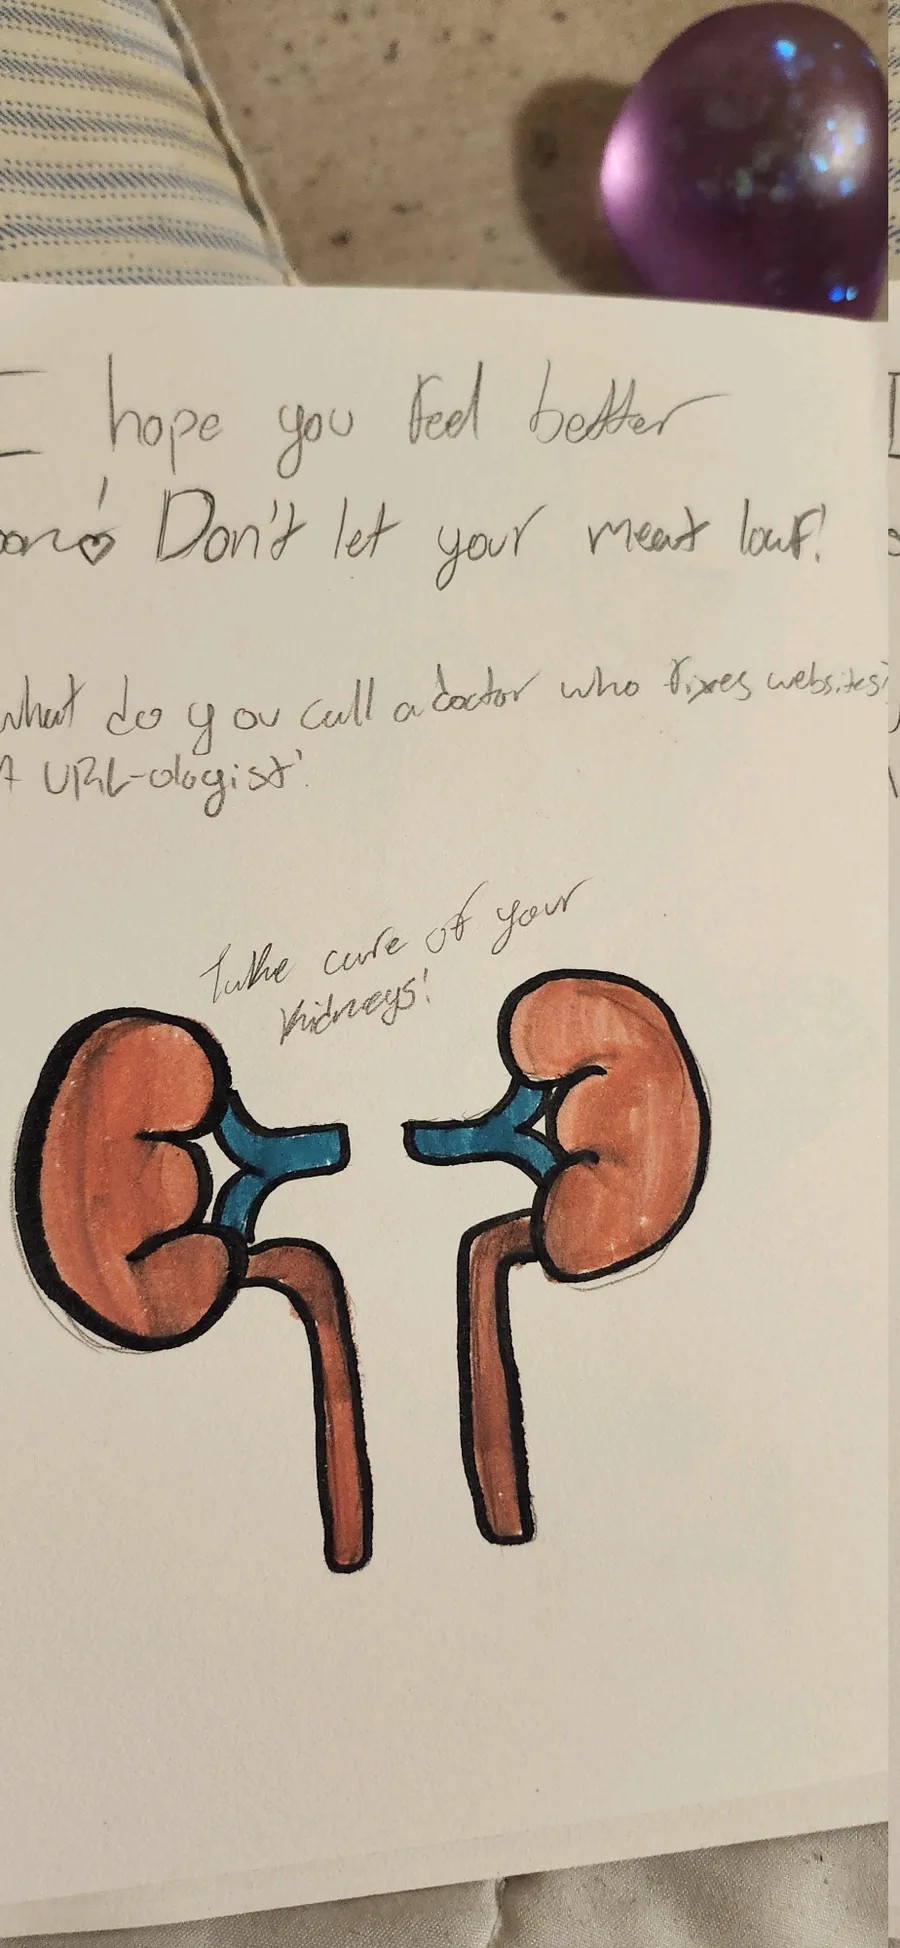 I hope you feel better
soon! Don't let your meat loaf!
What do you call a doctor who fixes websites?
A URL-ologist!
Take care of your
kidneys!